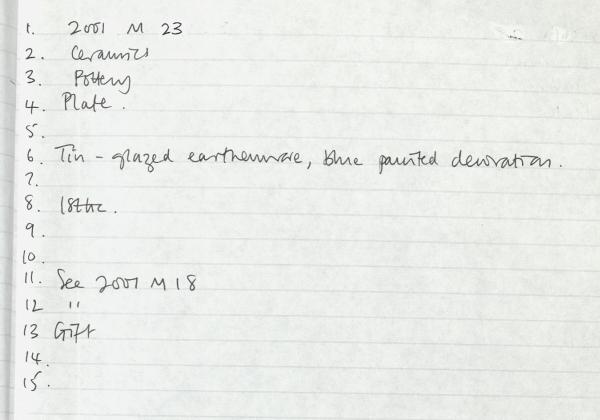 1. 2001 M 23
2. Ceramics
3. Pottery
4. Plate.
5.
6. Tin-glazed earthenware, blue painted decoration.
7.
8. 18thc.
9.
10.
11. See 2001 M 18
12 "
13 Gift
14.
15.